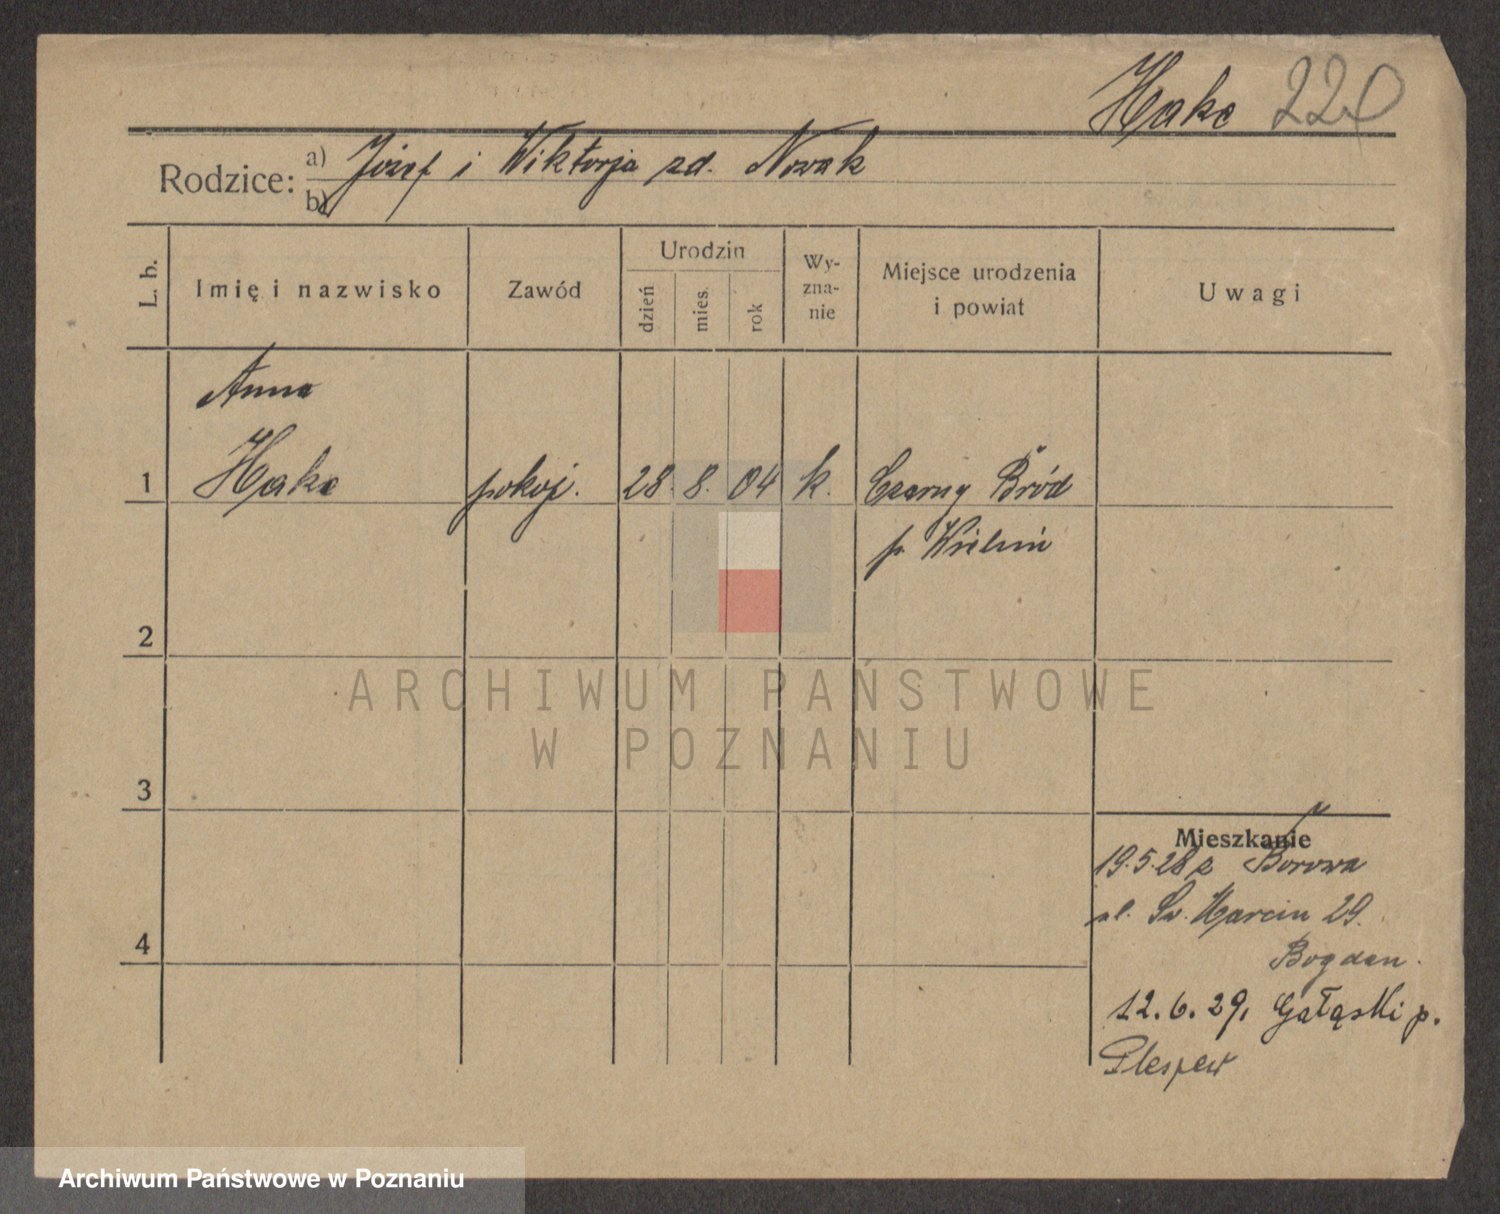 Hake 220
Rodzice: a) Józef i Wiktorja zd. Nowak
b)
L. b.
Imię i nazwisko
Zawód
Urodzin
dzień
mies.
rok
Wy-
zna-
nie
Miejsce urodzenia
i powiat
Uwagi
Anna
1 Hake pokoj. 28. 8. 04 k. Czarny Bród
p. Wieluń
2
3
4
ARCHIWUM PAŃSTWOWE
W POZNANIU
Mieszkanie
19.5.28 z Borowa
ul. Św. Marcin 29.
Bogdan.
12.6.29, Gałązki p.
Pleszew
Archiwum Państwowe w Poznaniu